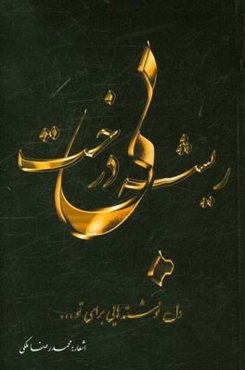 ریشه درخت
دل نوشته هایی برای تو ...
اشعار: محمدرضا ملکی